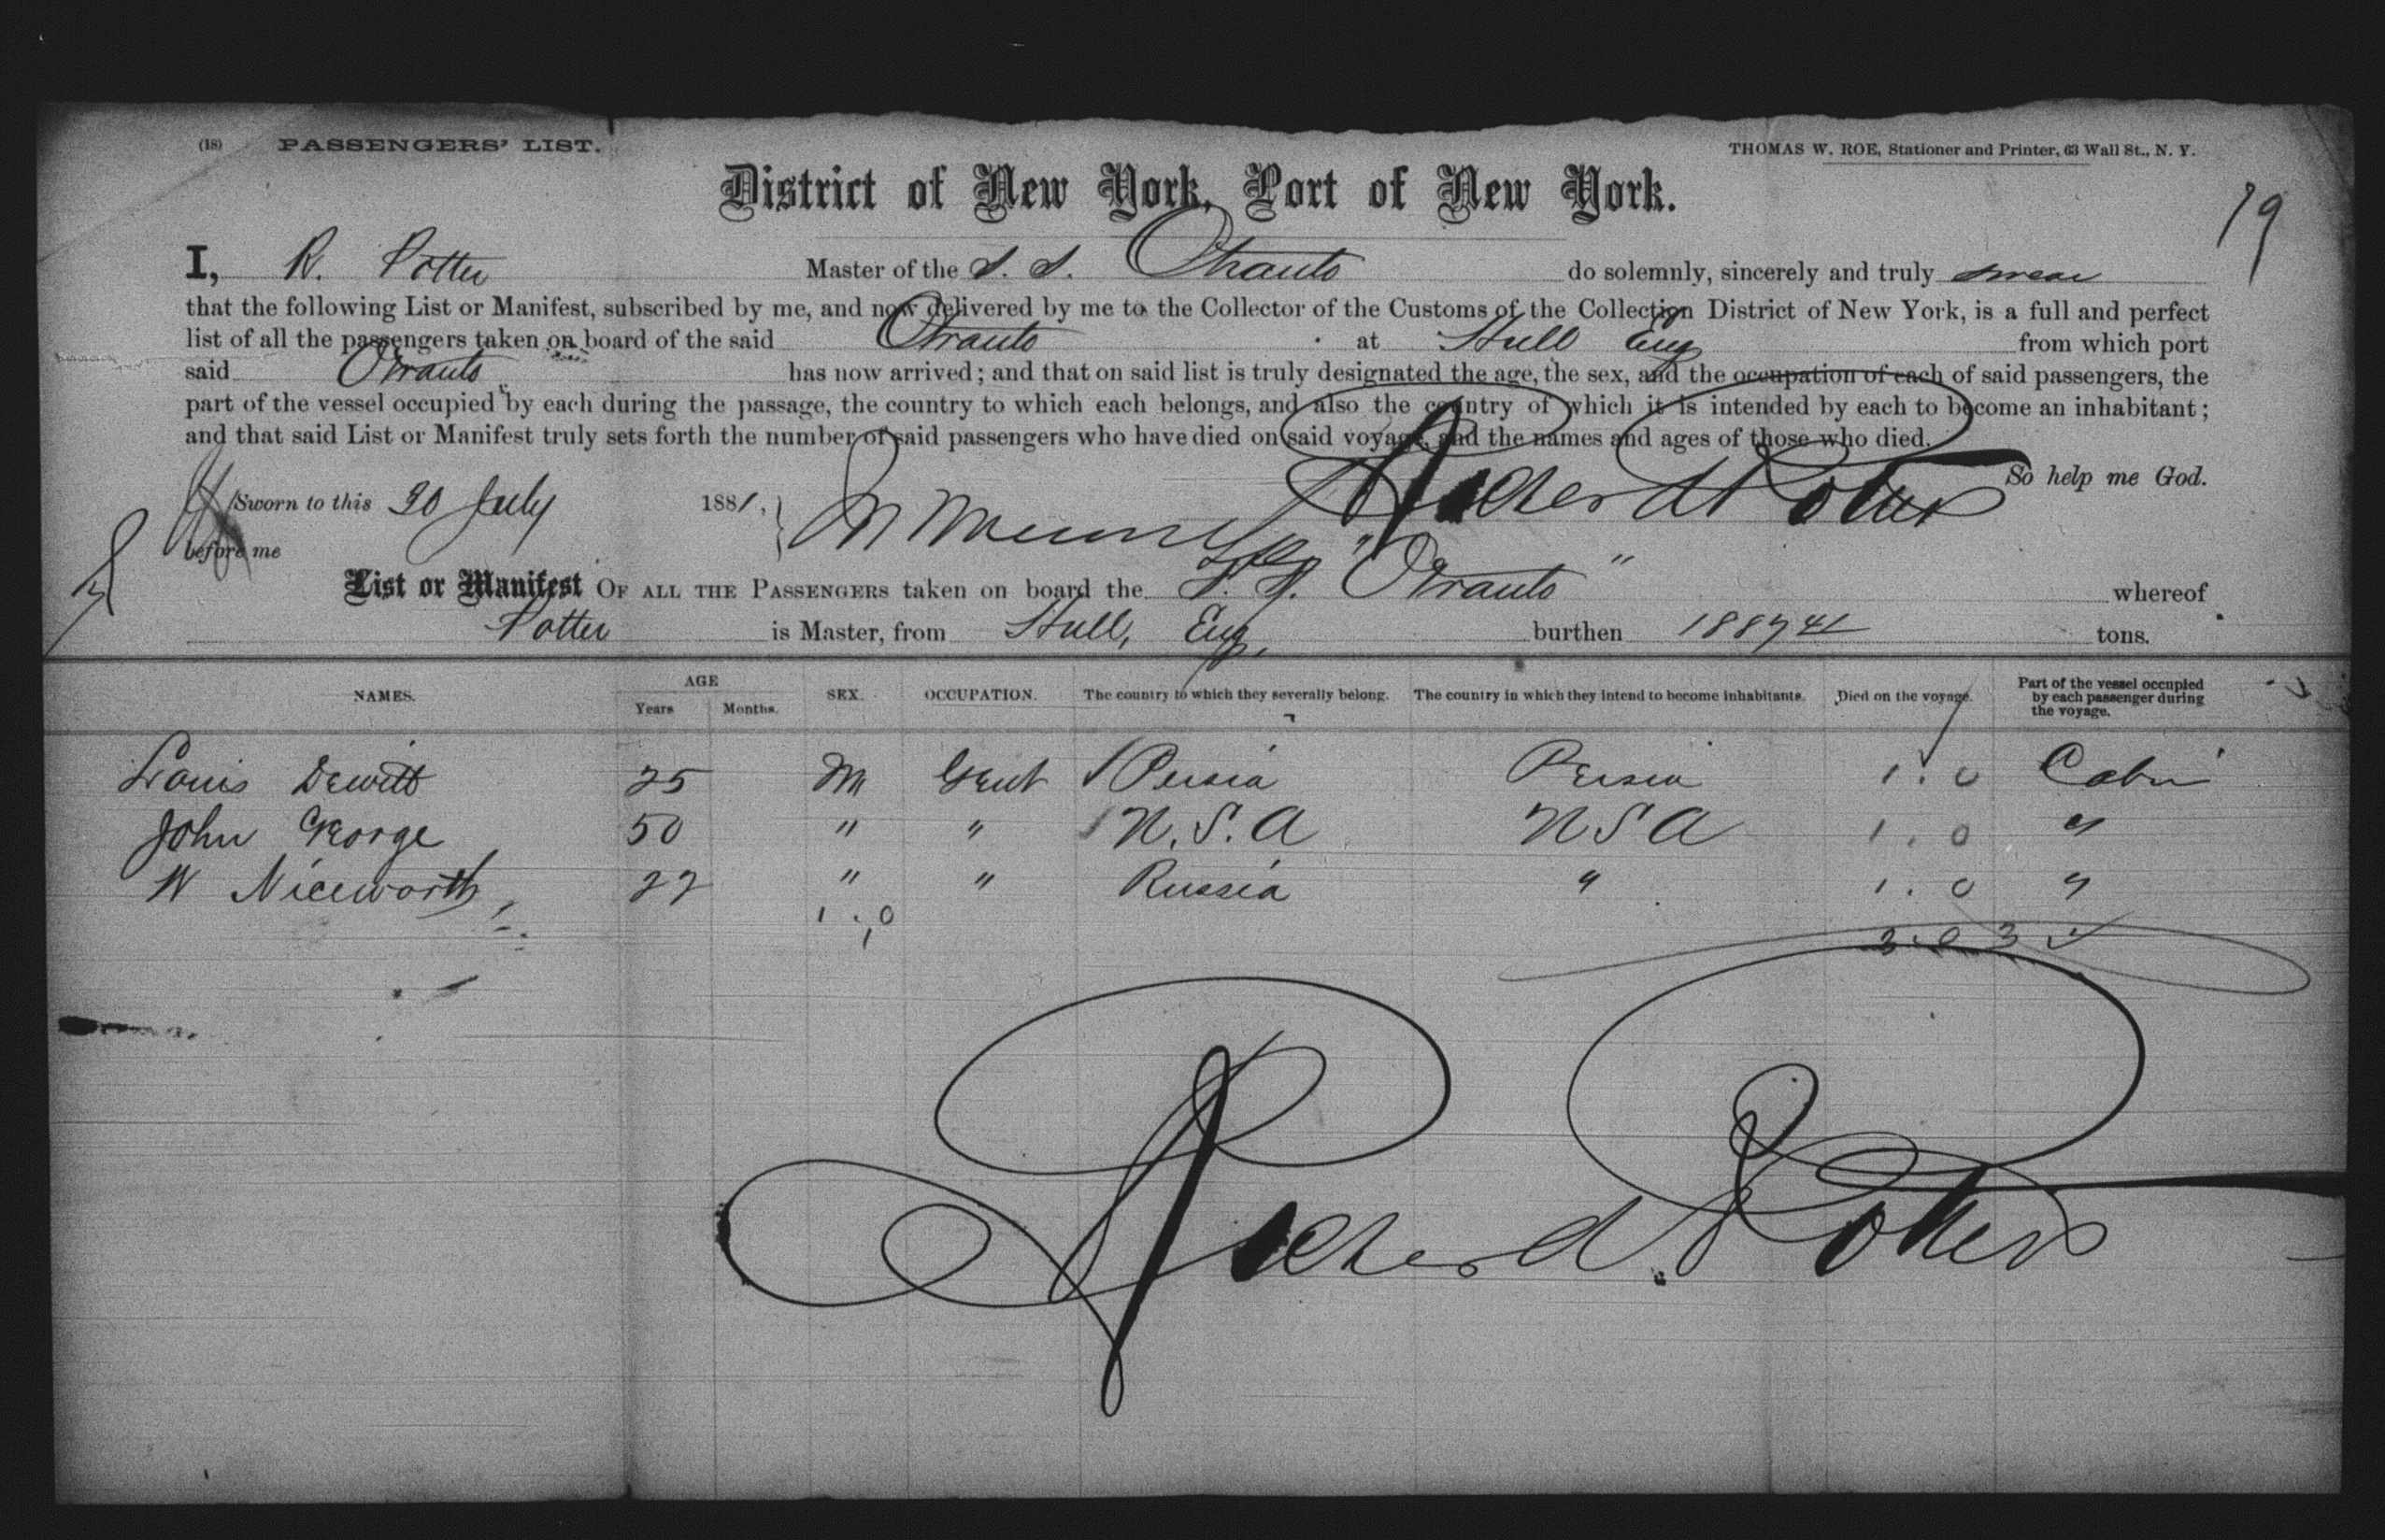 (18) PASSENGERS' LIST.
THOMAS W. ROE, Stationer and Printer, 63 Wall St., N. Y.
District of New York, Port of New York.
19
I, R. Potter Master of the S. S. Otranto do solemnly, sincerely and truly swear
that the following List or Manifest, subscribed by me, and now delivered by me to the Collector of the Customs of the Collection District of New York, is a full and perfect
list of all the passengers taken on board of the said Otranto at Hull Eng from which port
said Otranto has now arrived; and that on said list is truly designated the age, the sex, and the occupation of each of said passengers, the
part of the vessel occupied by each during the passage, the country to which each belongs, and also the country of which it is intended by each to become an inhabitant;
and that said List or Manifest truly sets forth the number of said passengers who have died on said voyage, and the names and ages of those who died.
So help me God.
Sworn to this 30 July 1881, Richard Potter
before me
List or Manifest OF ALL THE PASSENGERS taken on board the S. S. "Otranto" whereof
Potter is Master, from Hull, Eng. burthen 1887 41 tons.
NAMES. AGE Years Months. SEX. OCCUPATION. The country to which they severally belong. The country in which they intend to become inhabitants. Died on the voyage. Part of the vessel occupied by each passenger during the voyage.
Louis Dewitt 25 M Gent Persia Persia 1 . 0 Cabin
John George 50 " " U. S. A U S A 1 . 0 "
W Niceworth 22 " " Russia " 1 . 0 "
1 . 0
3 . 0 3
Richard Potter